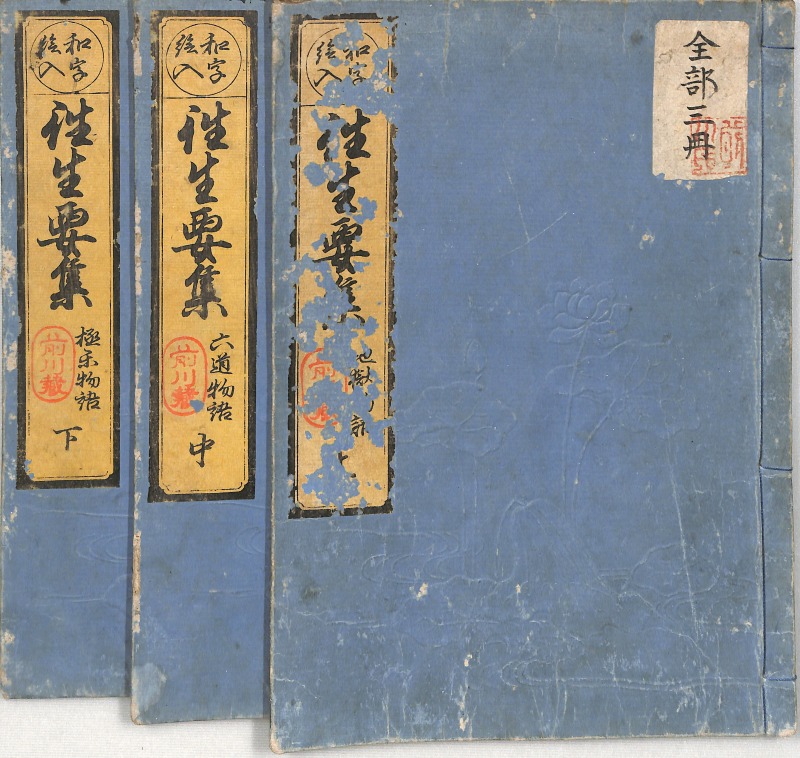 全部三冊
和字
絵入
往生要集
獄ノ
和字
絵入
往生要集
六道物語
前川蔵
中
和字
絵入
往生要集
極楽物語
前川蔵
下